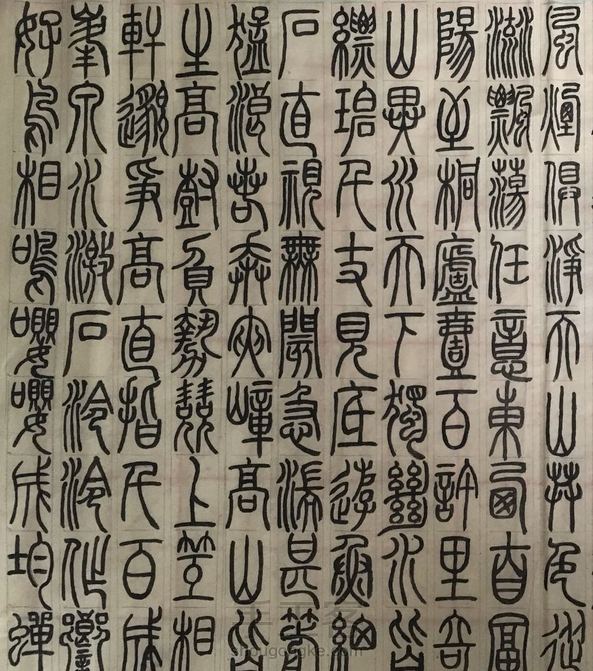 風煙俱淨天山共色從
流飄蕩任意東西自富
陽至桐廬壹百許里奇
山異水天下獨絕水皆
縹碧千丈見底遊魚細
石直視無閡急湍甚箭
猛浪若奔夾嶂高山皆
生高樹負勢競上互相
軒邈爭高直指千百成
峯泉水激石泠泠作響
好鳥相鳴嚶嚶成均蟬
shougongke.com